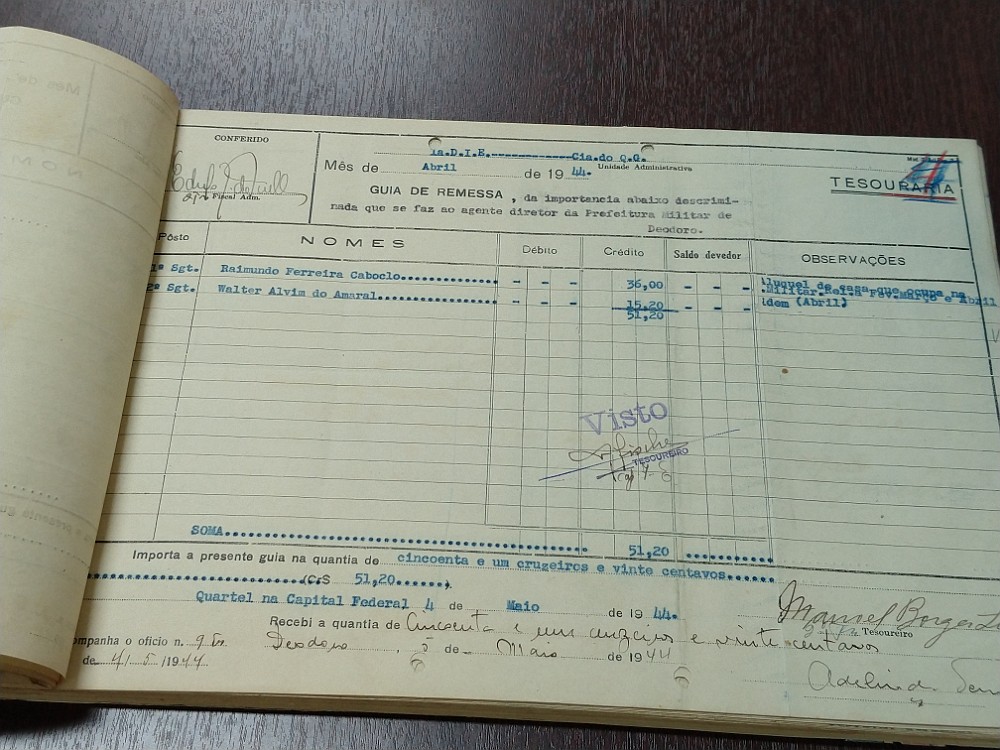 CONFERIDO
Fiscal Adm.
1a.D.I.E.------------Cia.do Q.G.
Unidade Administrativa
Mês de Abril de 1944.
GUIA DE REMESSA , da importancia abaixo descrimi-
nada que se faz ao agente diretor da Prefeitura Militar de
Deodoro.
TESOURARIA
Pôsto NOMES Débito Crédito Saldo devedor OBSERVAÇÕES
1º Sgt. Raimundo Ferreira Caboclo.............. - - - 36,00 - - - Aluguel de casa que ocupa na
Militar. e Abril
2º Sgt. Walter Alvim do Amaral................. - - - 15,20 - - - idem (Abril)
51,20
Visto
TESOUREIRO
SOMA.................................................. 51,20 ..........
Importa a presente guia na quantia de cincoenta e um cruzeiros e vinte centavos......
..............................(Cr$ 51,20.......).
Quartel na Capital Federal 4 de Maio de 1944.
Manuel Borges
Tesoureiro
Recebi a quantia de Cincoenta e um cruzeiros e vinte centavos
ompanha o oficio n. 9
Deodoro, 5 de Maio de 1944
de 4/5/1944